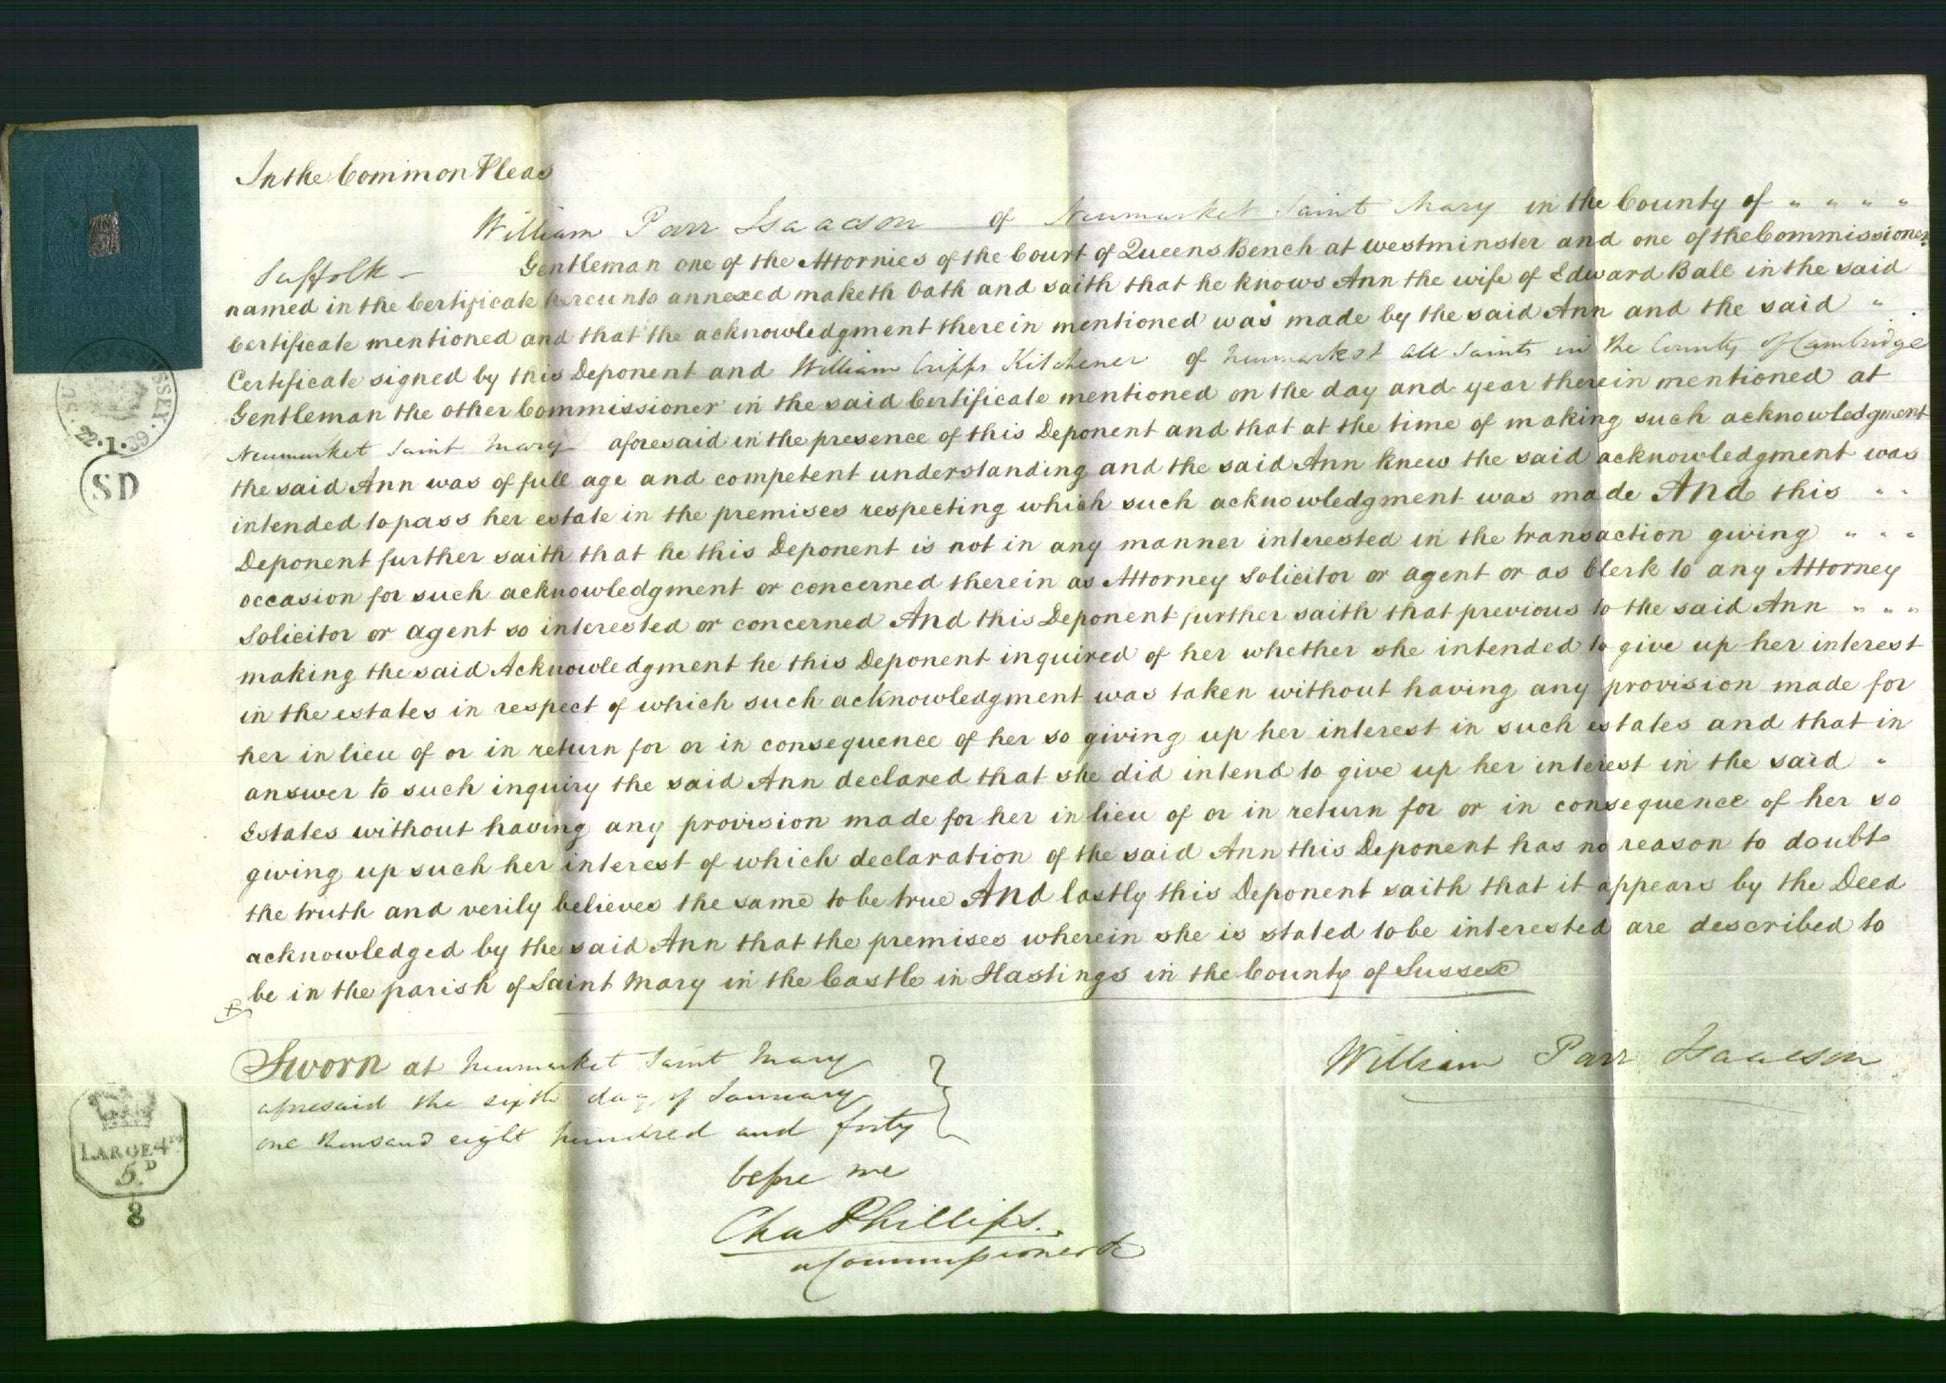 In the Common Pleas
William Parr Isaacson of Newmarket Saint Mary in the County of " " " "
Suffolk — Gentleman one of the Attornies of the Court of Queens Bench at Westminster and one of the Commissioners
named in the Certificate hereunto annexed maketh Oath and saith that he knows Ann the wife of Edward Ball in the said
Certificate mentioned and that the acknowledgment therein mentioned was made by the said Ann and the said "
Certificate signed by this Deponent and William Cripps Kitchener of Newmarket All Saints in the County of Cambridge
Gentleman the other Commissioner in the said Certificate mentioned on the day and year therein mentioned at
Newmarket Saint Mary aforesaid in the presence of this Deponent and that at the time of making such acknowledgment
the said Ann was of full age and competent understanding and the said Ann knew the said acknowledgment was
intended to pass her estate in the premises respecting which such acknowledgment was made And this " "
Deponent further saith that he this Deponent is not in any manner interested in the transaction giving " " "
occasion for such acknowledgment or concerned therein as Attorney Solicitor or agent or as Clerk to any Attorney
Solicitor or agent so interested or concerned And this Deponent further saith that previous to the said Ann " " "
making the said Acknowledgment he this Deponent inquired of her whether she intended to give up her interest
in the estates in respect of which such acknowledgment was taken without having any provision made for
her in lieu of or in return for or in consequence of her so giving up her interest in such estates and that in
answer to such inquiry the said Ann declared that she did intend to give up her interest in the said "
Estates without having any provision made for her in lieu of or in return for or in consequence of her so
giving up such her interest of which declaration of the said Ann this Deponent has no reason to doubt
the truth and verily believes the same to be true And lastly this Deponent saith that it appears by the Deed
acknowledged by the said Ann that the premises wherein she is stated to be interested are described to
be in the parish of Saint Mary in the Castle in Hastings in the County of Sussex
Sworn at Newmarket Saint Mary
aforesaid the sixth day of January
one thousand eight hundred and forty
before me
Cha Phillips.
a Commissioner &c
William Parr Isaacson
22.1.39
SD
LARGE 4to
5D
8